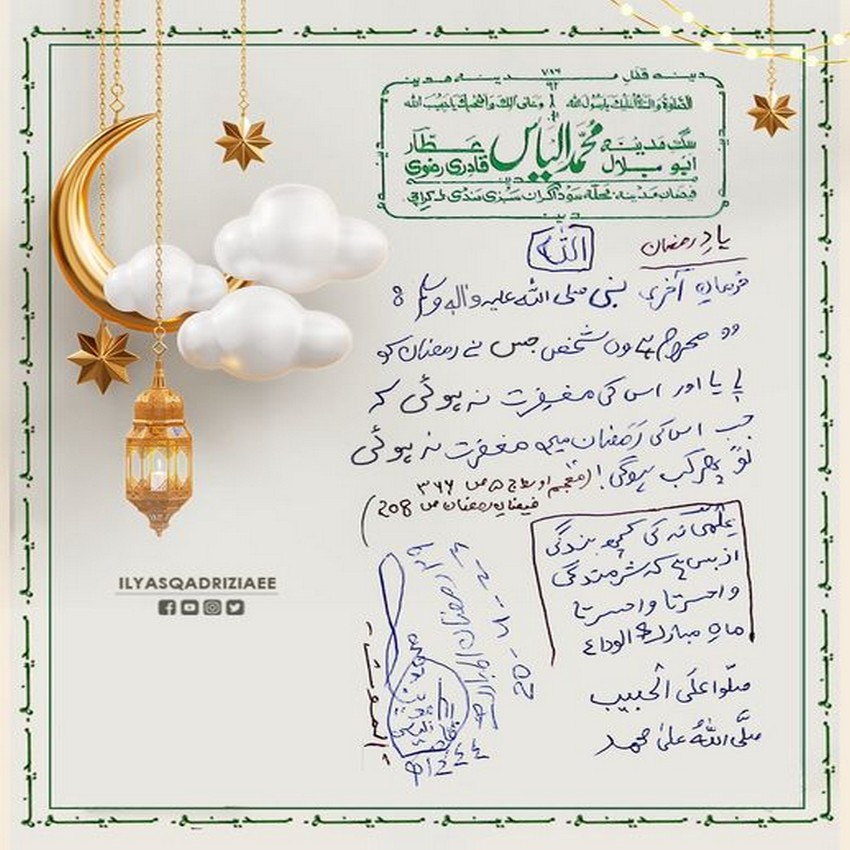 مدینه قفل ۷۸۶ مدینه مدینه
۹۲
الصلوٰة والسلام علیک یا رسول الله وعلی اٰلک واصحٰبک یا حبیب الله
سگ مدینه محمد الیاس عطار
ابو بلال قادری رضوی
فیضان مدینه، محله سوداگران سبزی منڈی کراچی
یادِ رمضان
الله
فرمانِ آخری نبی صلی الله علیه واٰله وسلم :
"محروم ہے وہ شخص جس نے رمضان کو
پایا اور اس کی مغفرت نہ ہوئی کہ
جب اس کی رَمَضان میں مغفرت نہ ہوئی
تو پھر کب ہوگی! (معجم اوسط ج ۵ ص ۳۶۶
فیضانِ رمضان ص 208)
نہ کی کچھ بندگی
از بس ہے کہ شرمندگی
واحسرتا واحسرتا
ماہِ مبارک الوداع
صلّوا علَی الْحبیب
صلَّی اللهُ علیٰ محمد
ILYASQADRIZIAEE
الموت
25-4-22